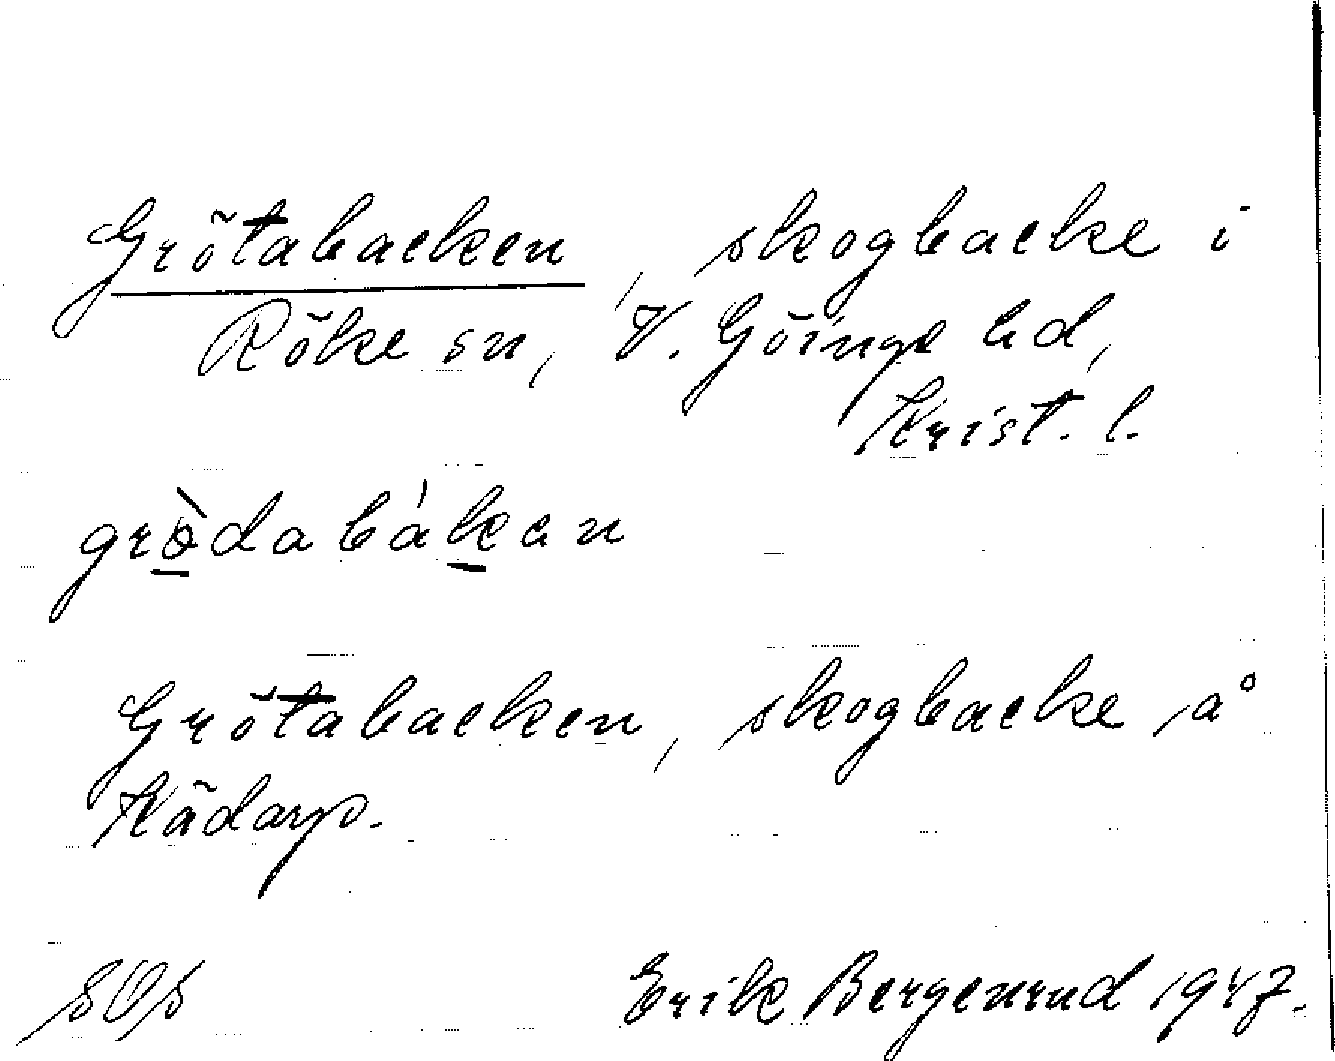 Grötabacken, skogbacke i
Röke sn, V. Göinge hd,
Krist. l.
grὸdabákan
Grötabacken, skogbacke på
Kädarp.
SOS
Erik Bergenrud 1947.